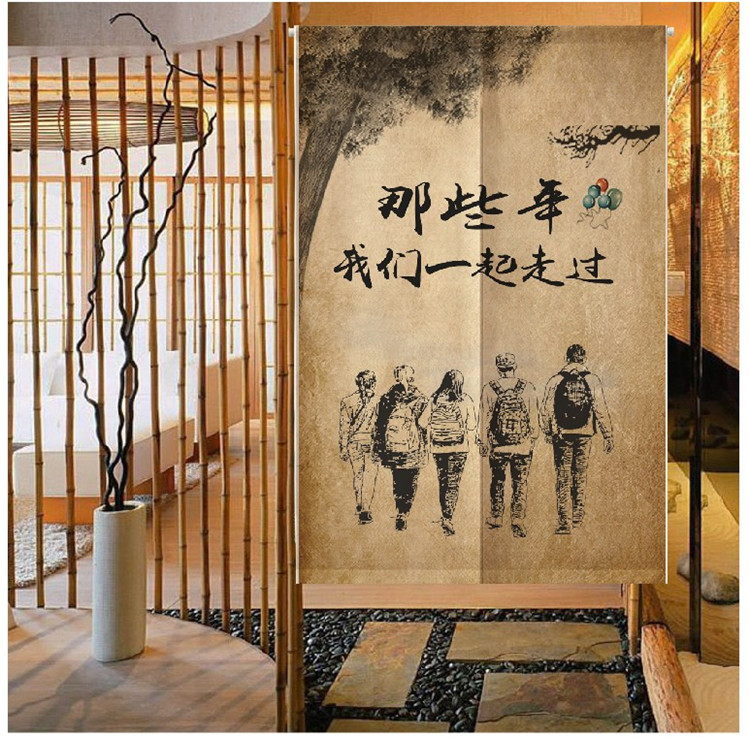 那些年
我们一起走过